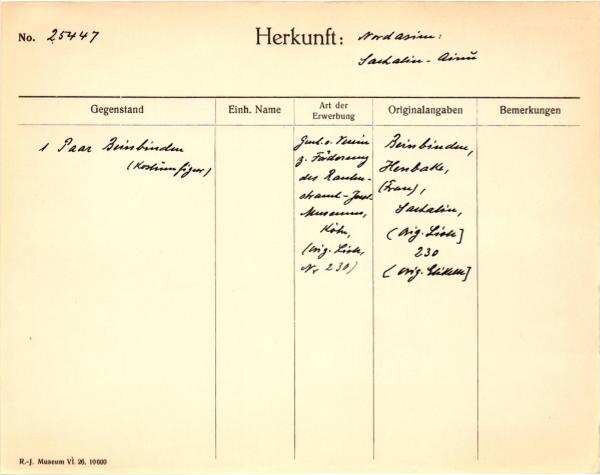 No. 25447
Herkunft: Nordasien:
Sachalin-Ainu
Gegenstand
Einh. Name
Art der
Erwerbung
Originalangaben
Bemerkungen
1 Paar Beinbinden
(Kostümfigur)
v. Verein
z. Förderung
des Rauten-
strauch-Joest
Museums,
Köln,
(Orig. Liste,
Nr. 230)
Beinbinden,
(Frau),
Sachalin,
(Orig. Liste]
230
(Orig. Etikette]
R.-J. Museum VI. 26, 10000